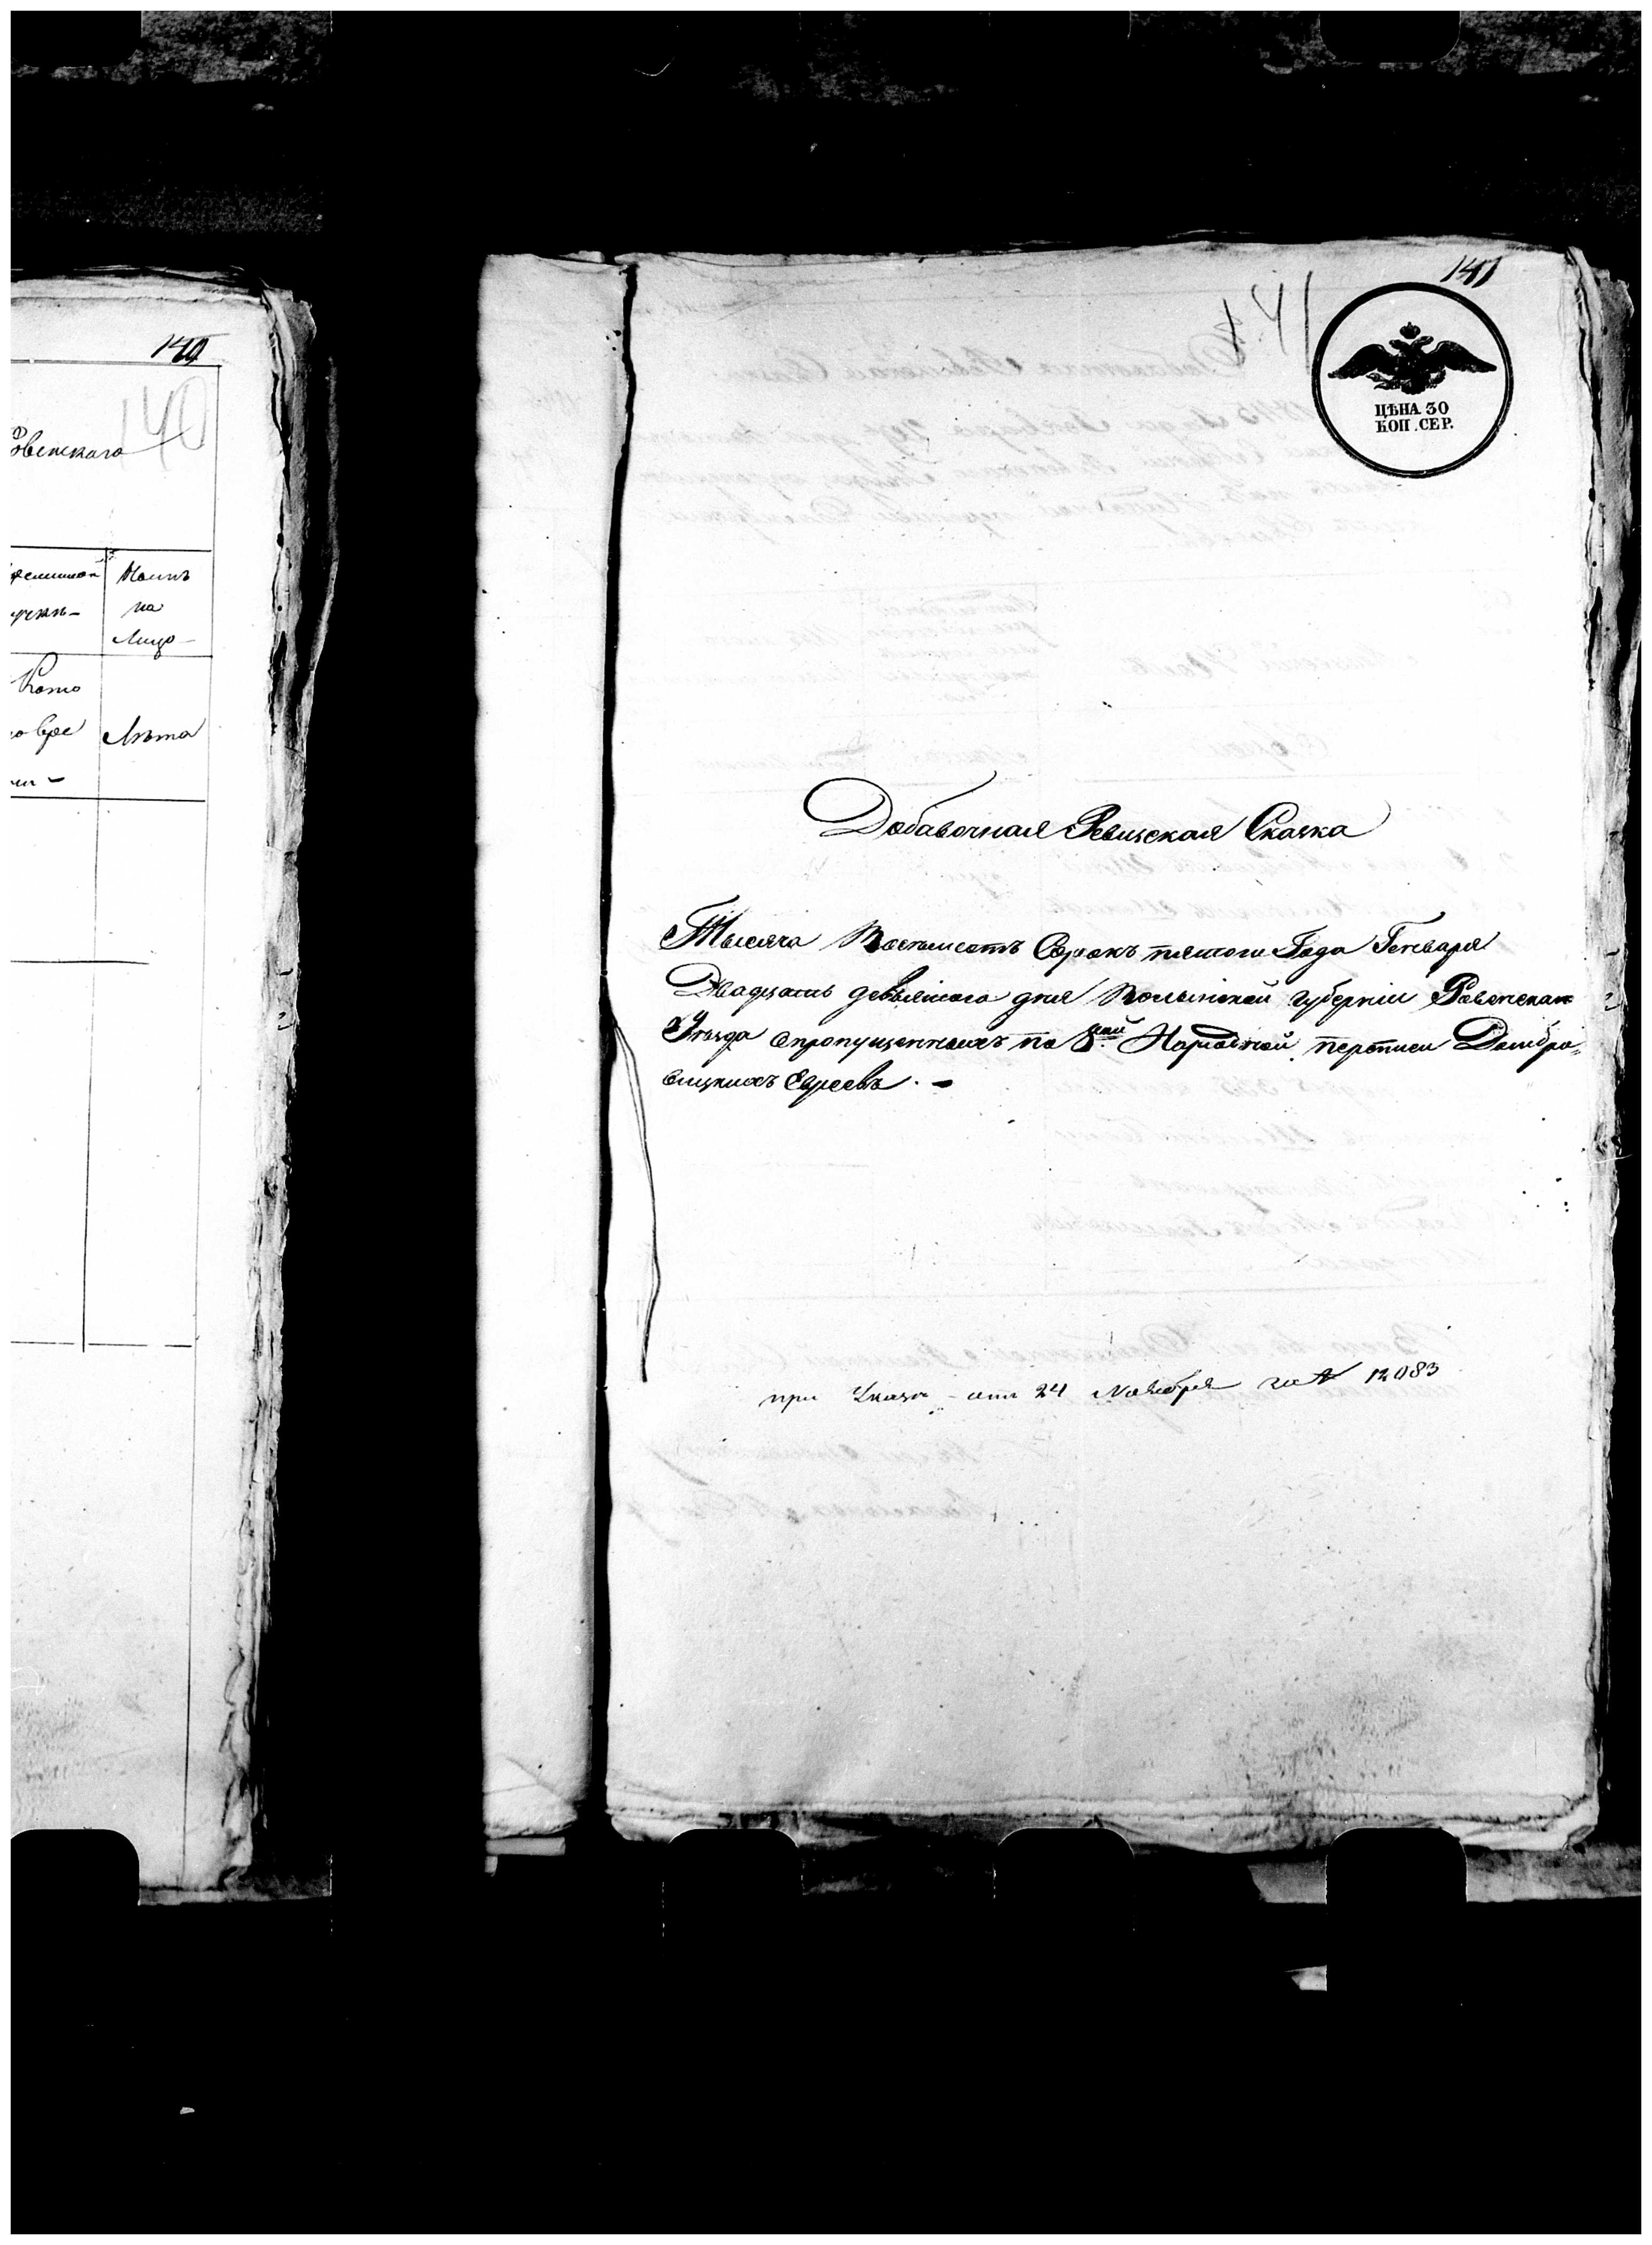 140
140
Ровенскаго
Нынѣ
на
Лицо
Лѣта
141
141
ЦѢНА 30
КОП. СЕР.
Добавочная Ревизская Сказка
Тысяча Восемьсотъ Сорокъ пятого Года Генваря
Двадцать девятого дня Волынской губерніи Ровенскаго
Уѣзда о пропущенныхъ по 8ой Народной переписи Домбро-
вицкихъ Евреевъ. —
при Указѣ отъ 24 Ноября за № 12083